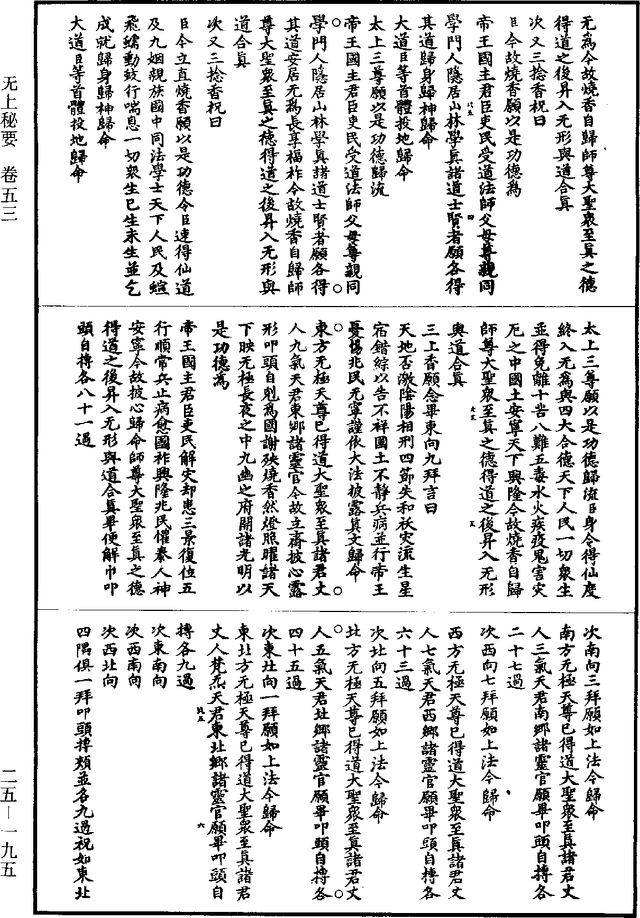 无爲今故燒香自歸師尊大聖衆至眞之德
得道之後昇入无形與道合眞
次又三捻香祝曰
臣今故燒香願以是功德爲
帝王國主君臣吏民受道法師父母尊親同
學門人隱居山林學眞諸道士賢者願各得
其道歸身歸神歸命
大道臣等首體投地歸命
太上三尊願以是功德歸流
帝王國主君臣吏民受道法師父母尊親同
學門人隱居山林學眞諸道士賢者願各得
其道安居无爲長享福祚今故燒香自歸師
尊大聖衆至眞之德得道之後昇入无形與
道合眞
次又三捻香祝曰
臣今立直燒香願以是功德令臣速得仙道
及九姻親族國中同法學士天下人民及蜎
飛蠕動蚑行喘息一切衆生已生未生並乞
成就歸身歸神歸命
大道臣等首體投地歸命
太上三尊願以是功德歸流臣身令得仙度
終入无爲與四大合德天下人民一切衆生
並得免離十苦八難五毒水火疾疫鬼害灾
厄之中國土安寧天下興隆今故燒香自歸
師尊大聖衆至眞之德得道之後昇入无形
與道合眞
三上香願念畢東向九拜言曰
天地否激陰陽相刑四節失和祅灾流生星
宿錯綜以告不祥國土不靜兵病並行帝王
憂惕兆民无寧謹依大法披露眞文歸命
東方无極天尊已得道大聖衆至眞諸君丈
人九氣天君東鄉諸靈官今故立齋披心露
形叩頭自剋爲國謝殃燒香然燈照曜諸天
下映无極長夜之中九幽之府開諸光明以
是功德爲
帝王國主君臣吏民解灾却患三景復位五
行順常兵止病愈國祚興隆兆民懽泰人神
安寧今故披心歸命師尊大聖衆至眞之德
得道之後昇入无形與道合眞畢便解巾叩
頭自搏各八十一過
次南向三拜願如上法今歸命
南方无極天尊已得道大聖衆至眞諸君丈
人三氣天君南鄉諸靈官願畢叩頭自搏各
二十七過
次西向七拜願如上法今歸命
西方无極天尊已得道大聖衆至眞諸君丈
人七氣天君西鄉諸靈官願畢叩頭自搏各
六十三過
次北向五拜願如上法今歸命
北方无極天尊已得道大聖衆至眞諸君丈
人五氣天君北鄉諸靈官願畢叩頭自搏各
四十五過
次東北向一拜願如上法今歸命
東北方无極天尊已得道大聖衆至眞諸君
丈人梵炁天君東北鄉諸靈官願畢叩頭自
搏各九過
次東南向
次西南向
次西北向
四隅俱一拜叩頭搏頰並各九過祝如東北
无上秘要　卷五三
二五—一九五